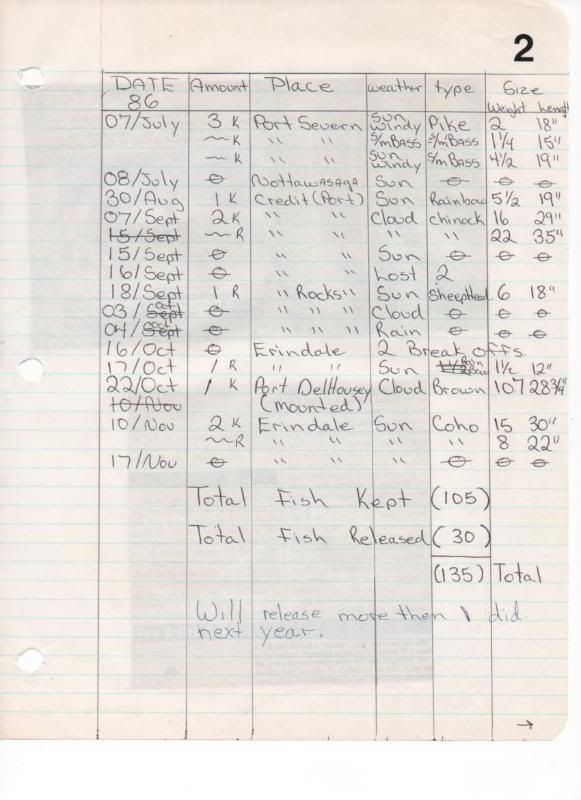 2
DATE Amount Place weather type Size
86 Weight Length
07/July 3 K Port Severn Sun Windy Pike 2 18"
~ K " " S/mBASS S/mBASS 1 1/4 15"
~ K " " Sun Windy S/mBASS 4 1/2 19"
08/July ⊖ Nottawasaga Sun ⊖ ⊖ ⊖
30/Aug 1 K Credit (Port) Sun Rainbow 5 1/2 19"
07/Sept 2 K " " Cloud chinock 16 29"
15/Sept ~ R " " " " 22 35"
15/Sept ⊖ " " Sun ⊖ ⊖ ⊖
16/Sept ⊖ " " Lost 2
18/Sept 1 R " Rocks " Sun SheepHead 6 18"
03/Sept oct ⊖ " " " Cloud ⊖ ⊖ ⊖
04/Sept oct ⊖ " " " Rain ⊖ ⊖ ⊖
16/Oct ⊖ Erindale 2 Break offs.
17/Oct 1 R " " Sun 1 1/2 12"
22/Oct 1 K Port DelHousey Cloud Brown 107 28 3/4"
10/Nov (mounted)
10/Nov 2 K Erindale Sun Coho 15 30"
~ R " " " " 8 22"
17/Nov ⊖ " " " ⊖ ⊖ ⊖
Total Fish Kept (105)
Total Fish Released (30)
(135) Total
Will release more then I did
next year.
→